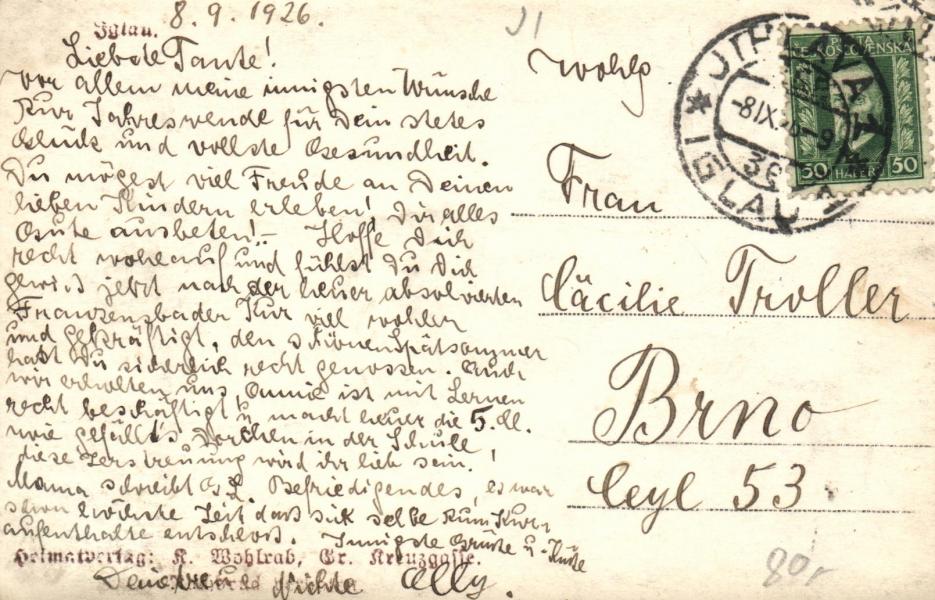 Iglau.
8. 9. 1926.
Liebste Tante!
vor allem meine innigsten Wünsche
zur Jahreswende für Dein stetes
Glück und vollste Gesundheit.
Du mögest viel Freude an Deinen
lieben Kindern erleben! Dir alles
Gute ausbeten! – Hoffe Dich
recht wohlauf und fühlst Du Dich
gewiß jetzt nach der heuer absolvierten
Franzensbader Kur viel wohler
und gekräftigt, den schönen Spätsommer
hast Du sicherlich recht genossen. Auch
wir erholten uns, Annie ist mit Lernen
recht beschäftigt u. macht heuer die 5. Kl.
wie gefällt's Dorchen in der Schule
diese Zerstreuung wird ihr lieb sein!
Mama schreibt G. L. Befriedigendes, es war
schon höchste Zeit daß sich selbe zum Kur-
aufenthalte entschloß. Innigste Grüße u. Küsse
Heimatverlag: K. Wohlrab, Gr. Kreuzgasse.
Deine treue Nichte Olly.
J1
Wohlg
Frau
Cäcilie Troller
Brno
Ceyl 53
80,-
POŠTA
ČESKOSLOVENSKÁ
50 HALÉŘŮ 50
JIHLAVA 1
-8.IX.26-9
3c
IGLAU 1